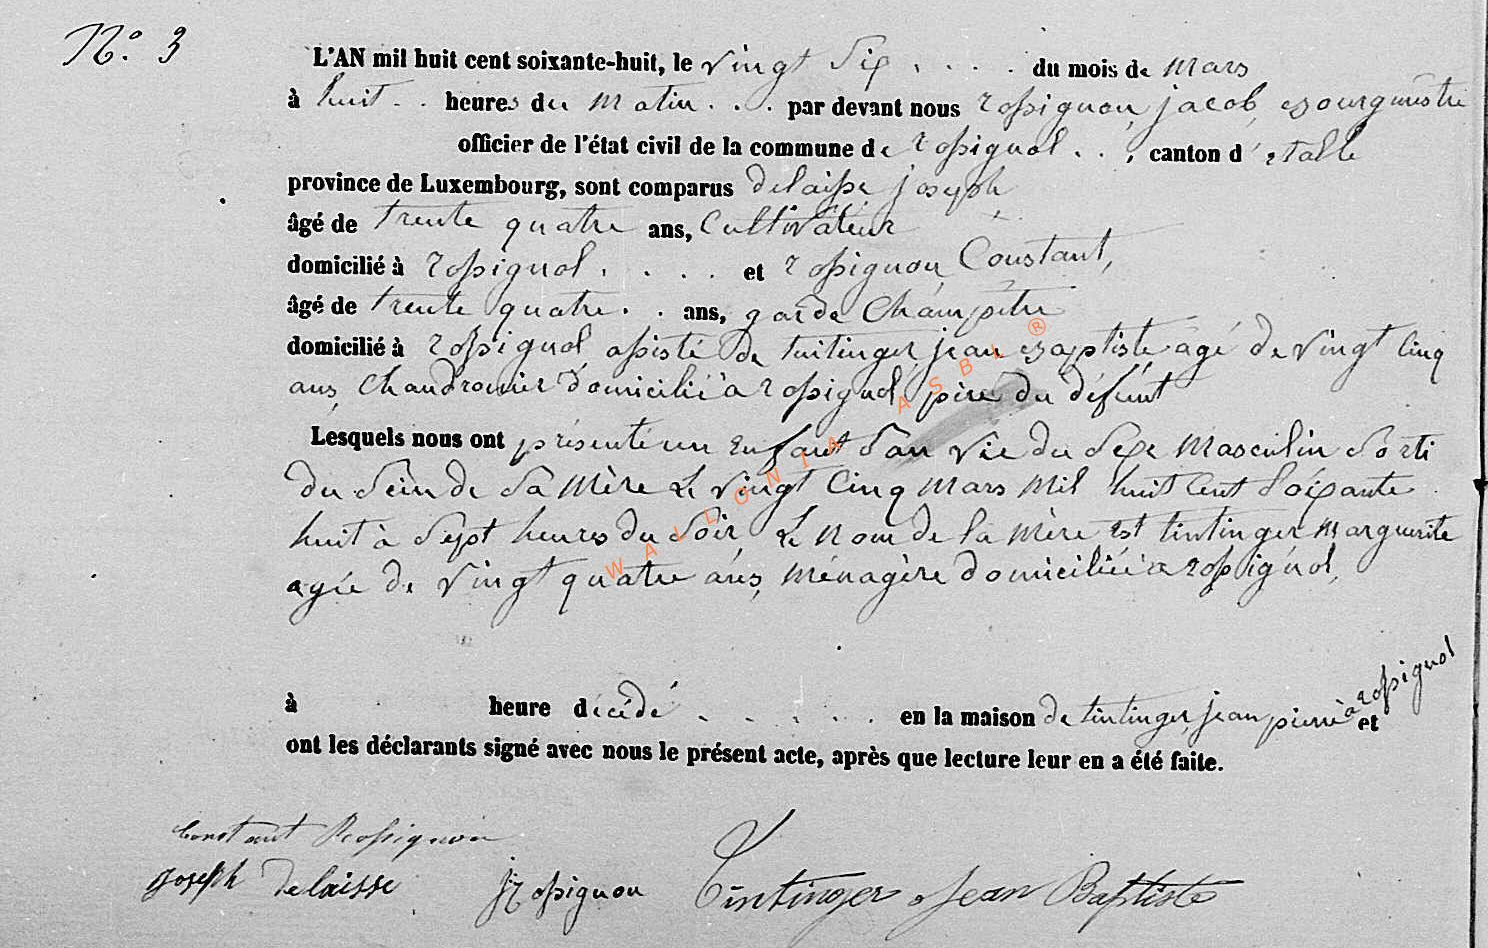 N.° 3
L'AN mil huit cent soixante-huit, le vingt six . . . . du mois de mars
à huit . . heures du matin . . . par devant nous rossignon, jacob, bourgmestre
officier de l'état civil de la commune de rossignol . . , canton d'étalle
province de Luxembourg, sont comparus delaisse joseph
âgé de trente quatre ans, Cultivateur
domicilié à rossignol . . . . et rossignon Constant,
âgé de trente quatre . . ans, garde Champêtre
domicilié à rossignol assisté de tintinger jean baptiste agé de vingt Cinq
ans, Chaudronnier domicilié à rossignol, père du défunt
Lesquels nous ont présenté un enfant san vie du sexe masculin sorti
du sein de sa mère le vingt Cinq mars mil huit Cent soixante
huit à sept heures du soir le nom de la mère est tintinger marguerite
agée de vingt quatre ans, ménagère domiciliée à rossignol,
à heure décédé . . . . . en la maison de tintinger, jean pierre à rossignol et
ont les déclarants signé avec nous le présent acte, après que lecture leur en a été faite.
Constant Rossignon
Joseph Delaisse J Rossignon Tintinger Jean Baptiste
WALLONIA ASBL ®